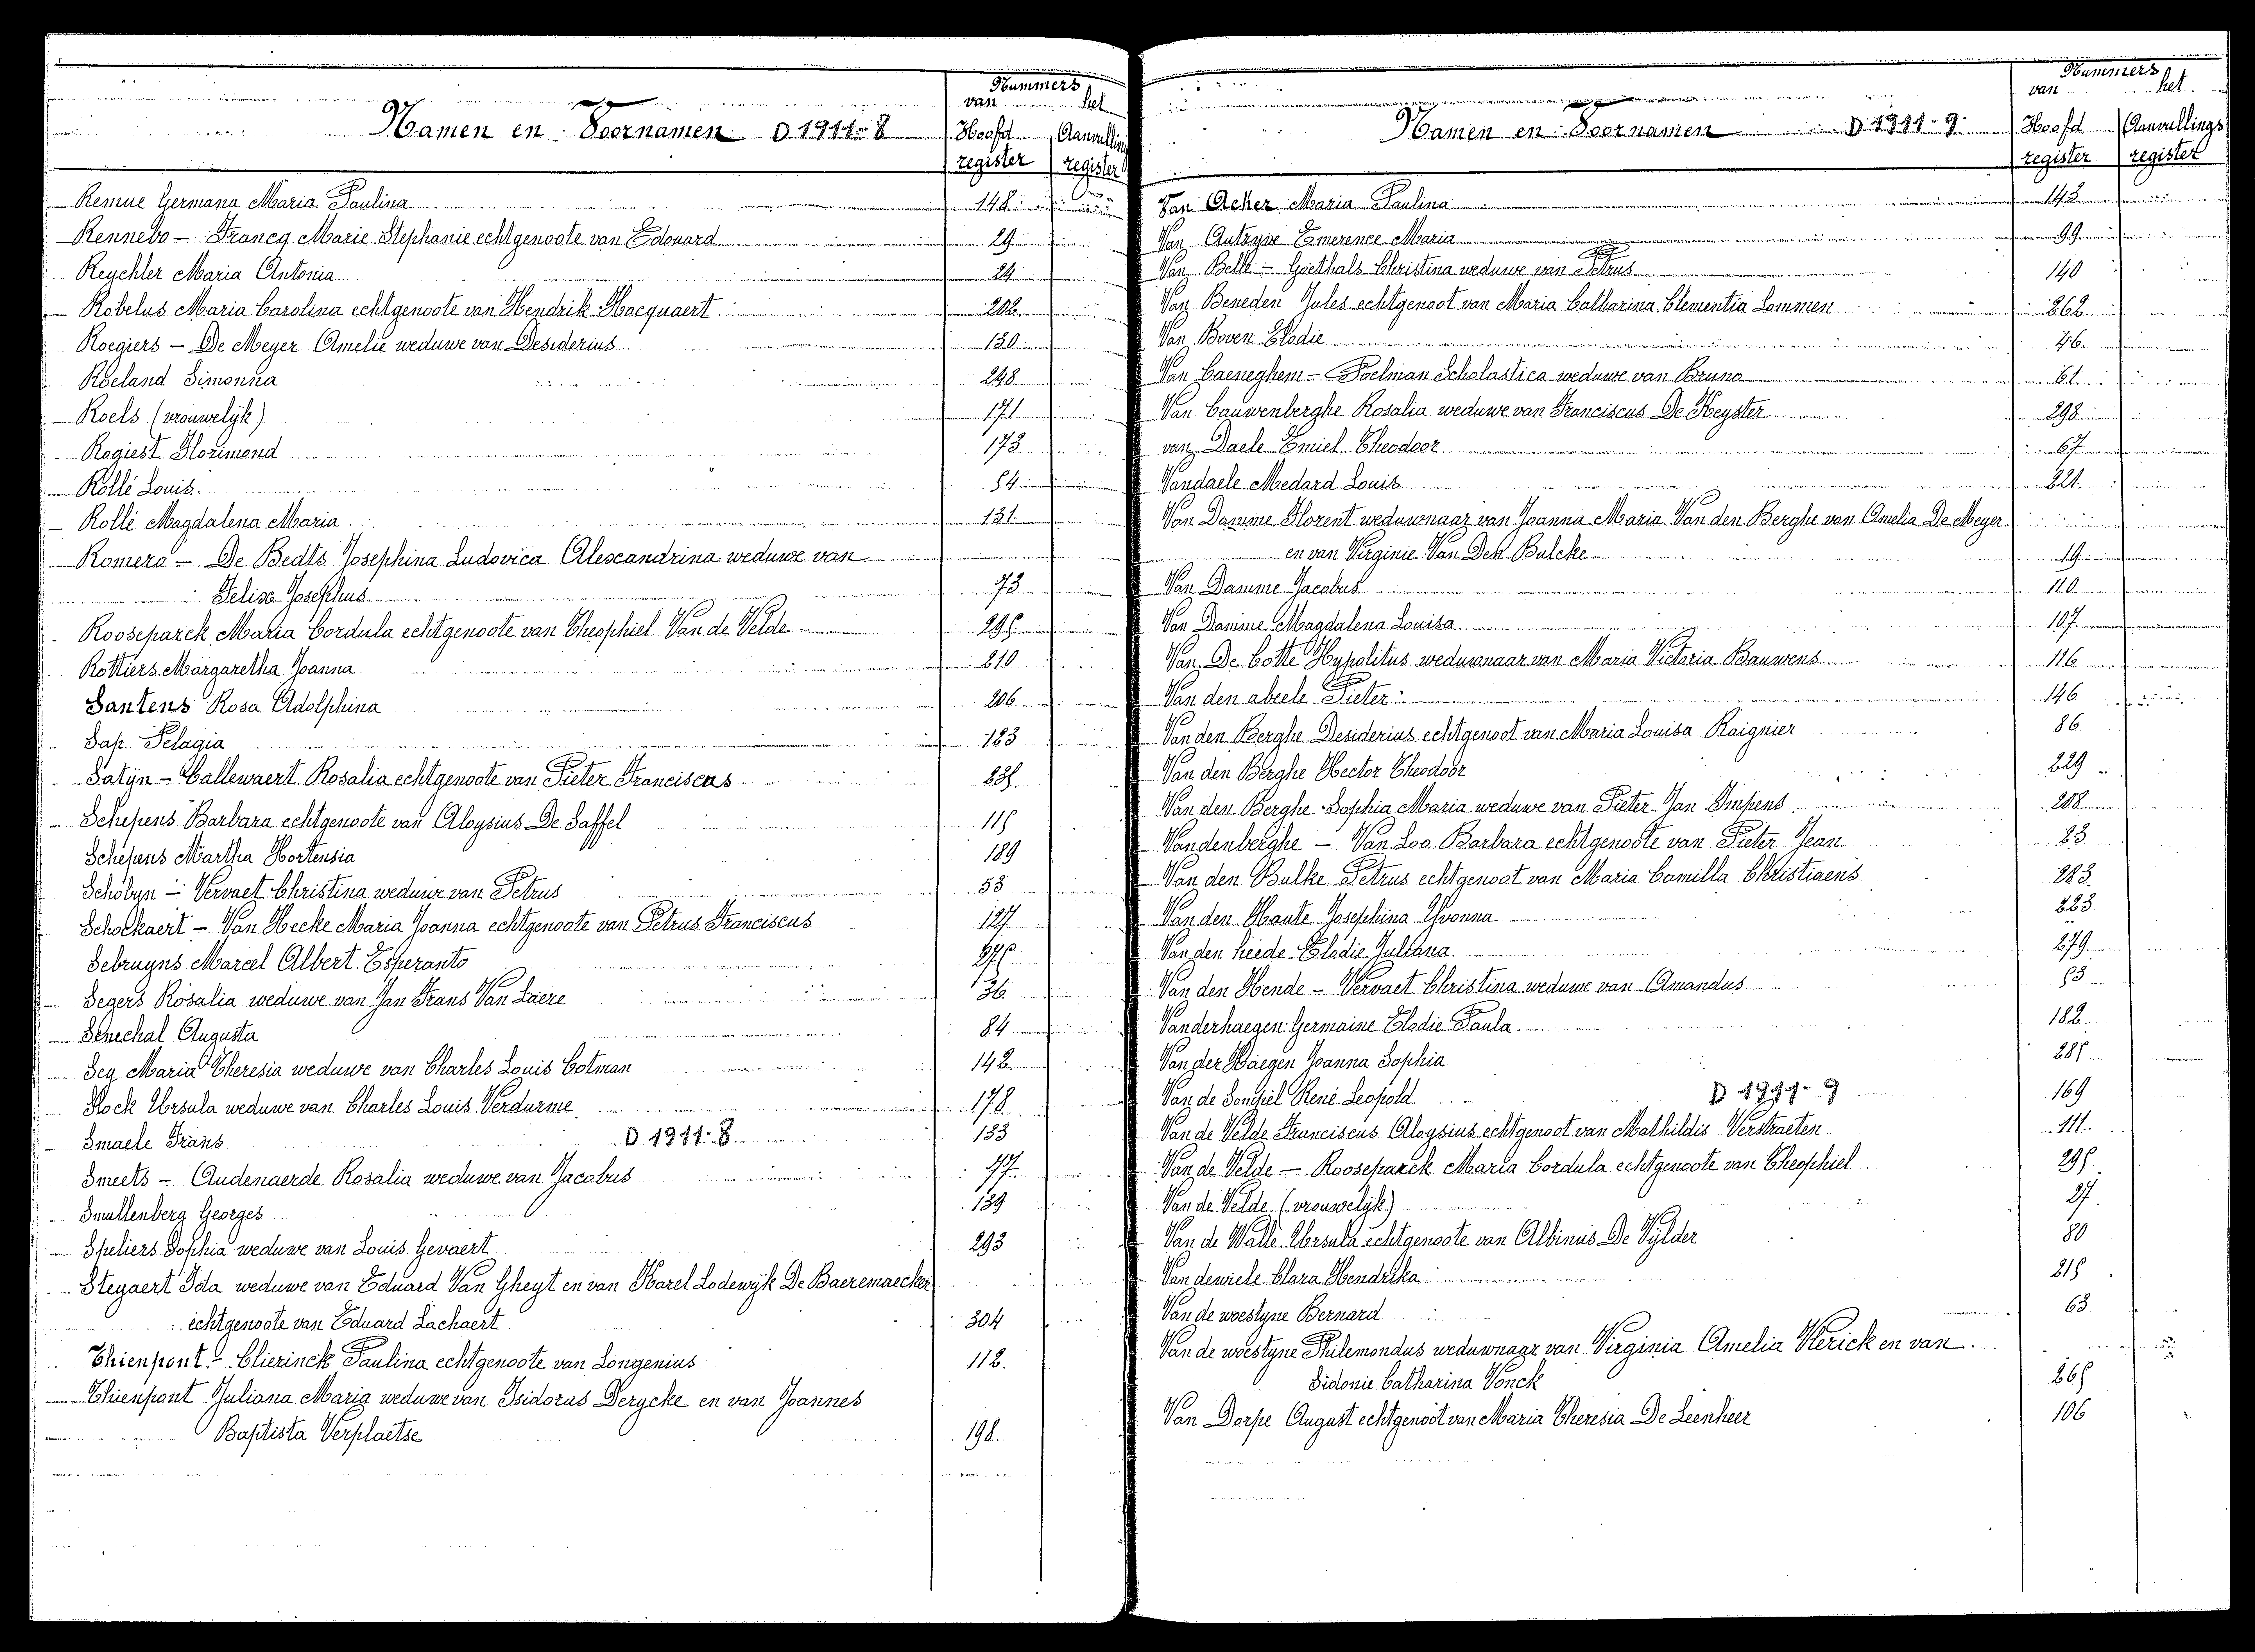 Namen en Voornamen D 1911-8
Nummers
van het
Hoofd Aanvullings
register register
Remue Germana Maria Paulina 148
Rennebo – Francq Marie Stephanie echtgenoote van Edouard 29
Reychler Maria Antonia 24
Robelus Maria Carolina echtgenoote van Hendrik Hacquaert 202
Roegiers – De Meyer Amelie weduwe van Desiderius 130
Roeland Simonna 248
Roels (vrouwelijk) 171
Rogiest Florimond 173
Rollé Louis 54
Rollé Magdalena Maria 131
Romero – De Bedts Josephina Ludovica Alexandrina weduwe van
Felix Josephus 73
Rooseparck Maria Cordula echtgenoote van Theophiel Van de Velde 295
Rottiers Margaretha Joanna 210
Santens Rosa Adolphina 206
Sap Pelagia 183
Satijn – Callewaert Rosalia echtgenoote van Pieter Franciscus 235
Schepens Barbara echtgenoote van Aloysius De Saffel 115
Schepens Martha Hortensia 189
Scholyn – Vervaet Christina weduwe van Petrus 53
Schockaert – Van Hecke Maria Joanna echtgenoote van Petrus Franciscus 127
Sebruyns Marcel Albert Esperanto 275
Segers Rosalia weduwe van Jan Frans Van Laere 36
Senechal Augusta 84
Sey Maria Theresia weduwe van Charles Louis Cotman 142
Slock Ursula weduwe van Charles Louis Verdurme 178
Smaele Frans D 1911-8 133
Smeets – Audenaerde Rosalia weduwe van Jacobus 77
Smullenberg Georges 139
Speliers Sophia weduwe van Louis Gevaert 293
Steyaert Ida weduwe van Eduard Van Gheyt en van Karel Lodewijk De Baeremaecker
echtgenoote van Eduard Lachaert 304
Thienpont – Clierinck Paulina echtgenoote van Longenius 112
Thienpont Juliana Maria weduwe van Isidorus Derycke en van Joannes
Baptista Verplaetse 198
Namen en Voornamen D 1911-9
Nummers
van het
Hoofd Aanvullings
register register
Van Acker Maria Paulina 143
Van Autryve Emerence Maria 99
Van Belle – Goethals Christina weduwe van Petrus 140
Van Beneden Jules echtgenoot van Maria Catharina Clementia Lommen 262
Van Boven Elodie 46
Van Caeneghem – Poelman Scholastica weduwe van Bruno 61
Van Cauwenberghe Rosalia weduwe van Franciscus De Keyster 298
van Daele Emiel Theodoor 67
Vandaele Medard Louis 221
Van Damme Florent weduwnaar van Joanna Maria Van den Berghe van Amelia De Meyer
en van Virginie Van Den Bulcke 19
Van Damme Jacobus 110
Van Damme Magdalena Louisa 107
Van De Cotte Hypolitus weduwnaar van Maria Victoria Bauwens 116
Van den abeele Pieter 146
Van den Berghe Desiderius echtgenoot van Maria Louisa Raignier 86
Van den Berghe Hector Theodoor 229
Van den Berghe Sophia Maria weduwe van Pieter Jan Impens 218
Vandenberghe – Van Loo Barbara echtgenoote van Pieter Jean 23
Van den Bulke Petrus echtgenoot van Maria Camilla Christiaens 283
Van den Haute Josephina Yvonna 223
Van den heede Elodie Juliana 279
Van den Hende – Vervaet Christina weduwe van Amandus 53
Vanderhaegen Germaine Elodie Paula 182
Van der Haegen Joanna Sophia 285
Van de Sompiel René Leopold D 1911-9 169
Van de Velde Franciscus Aloysius echtgenoot van Mathildis Verstraeten 111
Van de Velde – Rooseparck Maria Cordula echtgenoote van Theophiel 295
Van de Velde (vrouwelijk) 27
Van de Walle Ursula echtgenoote van Albinus De Vylder 80
Van dewiele Clara Hendrika 215
Van de woestyne Bernard 63
Van de woestyne Philemondus weduwnaar van Virginia Amelia Klerick en van
Sidonie Catharina Vonck 265
Van Dorpe August echtgenoot van Maria Theresia De Leenheer 106